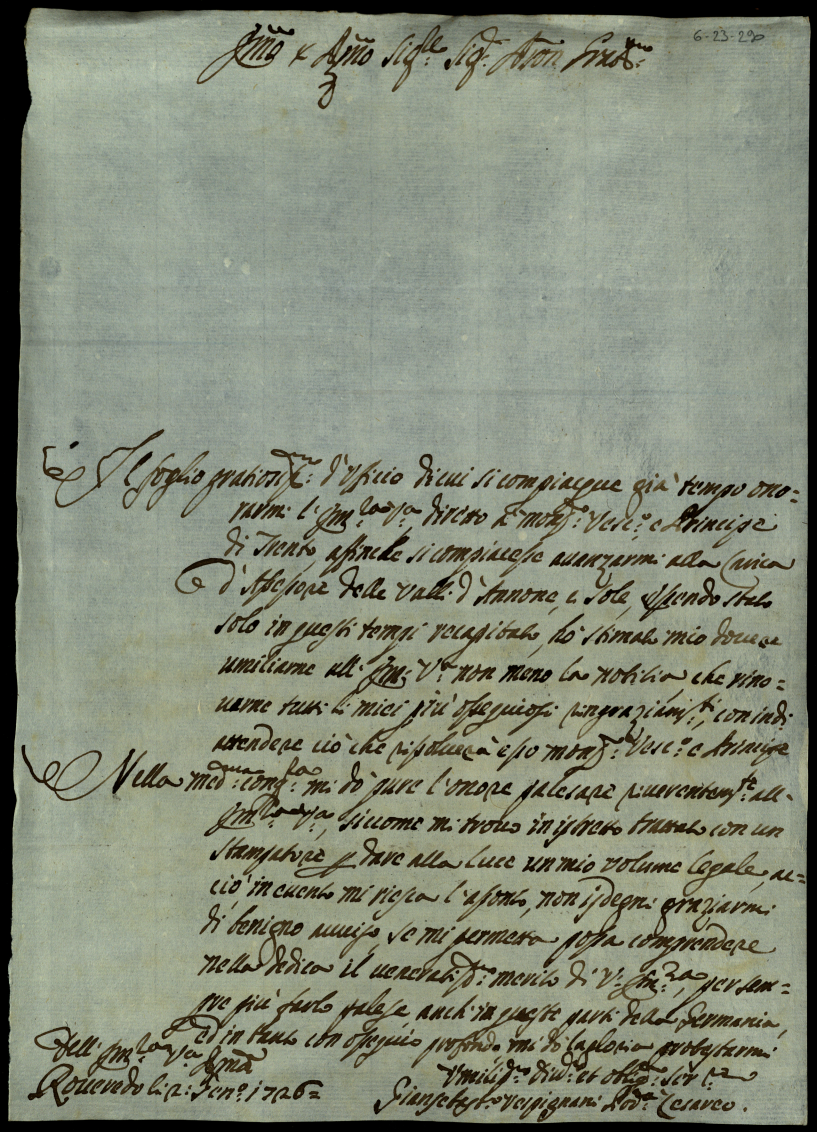 6-23-290
Em̃o & R̃mo Sig.re Sig.r Pron. Col.mo
Il foglio gratiosiss.mo d'Ufficio di cui si compiacque già tempo ono=
rarmi l'Em.za V.ra, diretto à mons.r Vesc.o, e Principe
di Trento, affinche si compiacesse auanzarmi alla Carica
d'Assessore delle Valli d'Annone, e Sole, essendo stato
solo in questi tempi recapitato, hò stimato mio douere
umiliarne all'Em. V.ra non meno la notitia, che rino=
uarne tutti li miei più ossequiosi ringraziam.ti, con indi
attendere ciò che rissoluerà esso mons.r Vesc.o e Principe
Nella med.ma cong.ra mi dò pure l'onore palesare riuerentem.te all'
Em.za V.ra, siccome mi trouo in istretto trattato con un
Stampatore p dare alla luce un mio volume legale, ac=
ciò in euento mi riesca l'assonto, non isdegni graziarmi
di benigno auuiso se mi permetta possa comprendere
nella dedica il veneratiss.o merito di V. Em.za, per sem=
pre più farlo palese anch'in queste parti della Germania,
ed in tanto con ossequio profondo mi dò la gloria protestarmi
Dell'Em.za V.ra R̃ma
Roueredo li 2: Gen.o 1726=
Umiliss.o Diu.o et oblig.o ser.re
Giansebast.o Vespignani Pod.a Cesareo.